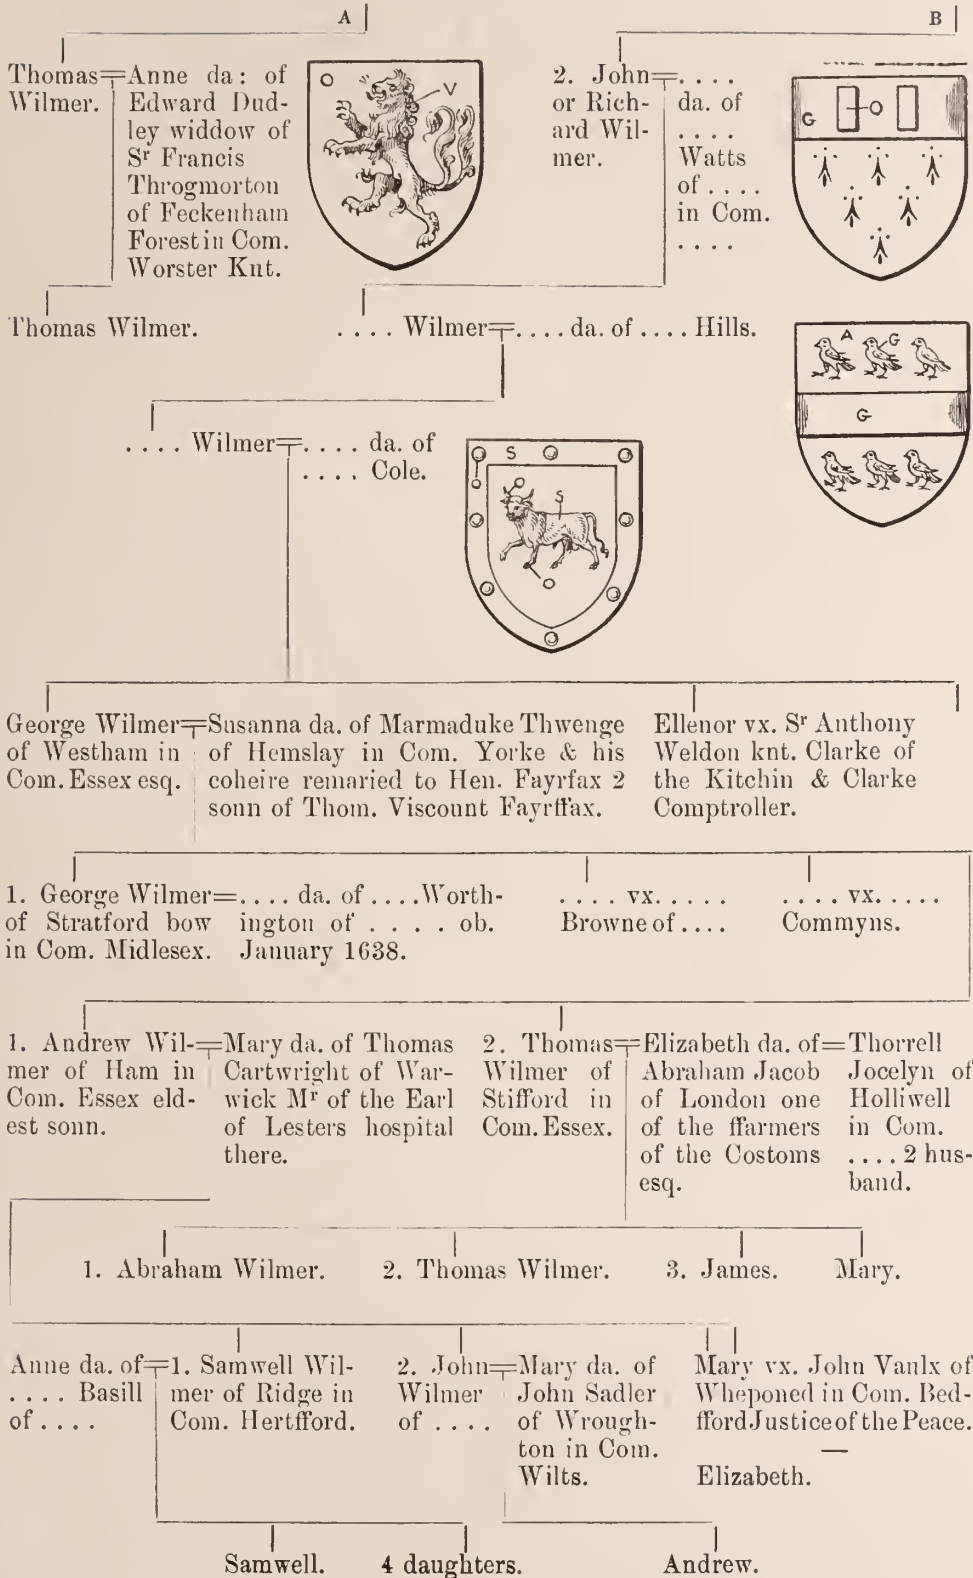 A
B
Thomas
Wilmer.
Anne da: of
Edward Dud-
ley widdow of
Sr Francis
Throgmorton
of Feckenham
Forest in Com.
Worster Knt.
O
V
2. John
or Rich-
ard Wil-
mer.
. . . .
da. of
. . . .
Watts
of . . . .
in Com.
. . . .
G
O
Thomas Wilmer.
. . . . Wilmer
. . . . da. of . . . . Hills.
A
G
G
. . . . Wilmer
. . . . da. of
. . . . Cole.
S
O
O
S
O
George Wilmer
of Westham in
Com. Essex esq.
Susanna da. of Marmaduke Thwenge
of Hemslay in Com. Yorke & his
coheire remaried to Hen. Fayrfax 2
sonn of Thom. Viscount Fayrffax.
Ellenor vx. Sr Anthony
Weldon knt. Clarke of
the Kitchin & Clarke
Comptroller.
1. George Wilmer
of Stratford bow
in Com. Midlesex.
. . . . da. of . . . . Worth-
ington of . . . . ob.
January 1638.
. . . . vx. . . . .
Browne of . . . .
. . . . vx. . . . .
Commyns.
1. Andrew Wil-
mer of Ham in
Com. Essex eld-
est sonn.
Mary da. of Thomas
Cartwright of War-
wick Mr of the Earl
of Lesters hospital
there.
2. Thomas
Wilmer of
Stifford in
Com. Essex.
Elizabeth da. of
Abraham Jacob
of London one
of the ffarmers
of the Costoms
esq.
Thorrell
Jocelyn of
Holliwell
in Com.
. . . . 2 hus-
band.
1. Abraham Wilmer.
2. Thomas Wilmer.
3. James.
Mary.
Anne da. of
. . . . Basill
of . . . .
1. Samwell Wil-
mer of Ridge in
Com. Hertfford.
2. John
Wilmer
of . . . .
Mary da. of
John Sadler
of Wrough-
ton in Com.
Wilts.
Mary vx. John Vaulx of
Wheponed in Com. Bed-
fford Justice of the Peace.
—
Elizabeth.
Samwell.
4 daughters.
Andrew.